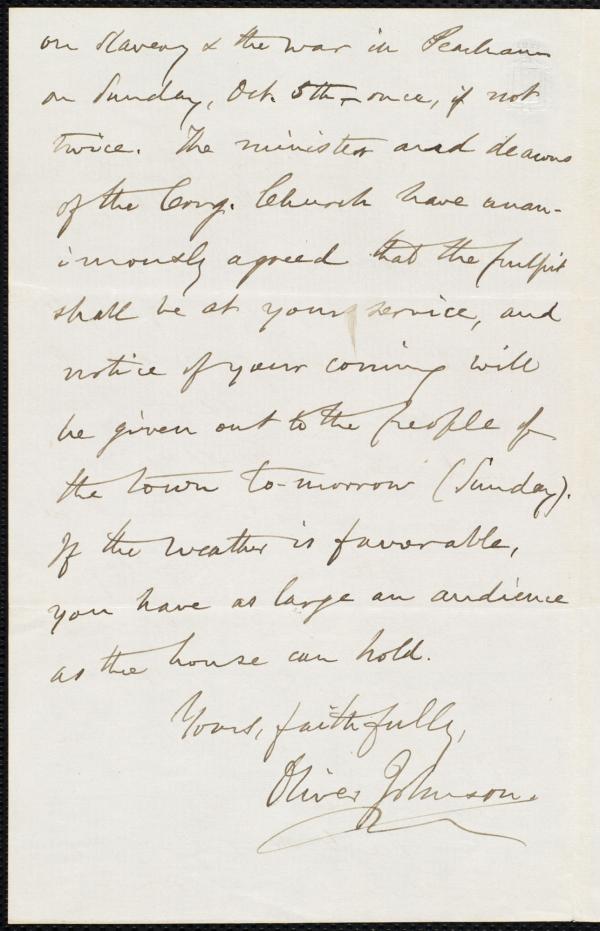 on Slavery & the war in Peacham
on Sunday, Oct. 5th—once, if not
twice. The minister and deacons
of the Cong. Church have unan-
imously agreed that the pulpit
shall be at your service, and
notice of your coming will
be given out to the people of
the town to-morrow (Sunday).
If the weather is favorable,
you have as large an audience
as the house can hold.
Yours, faithfully,
Oliver Johnson.